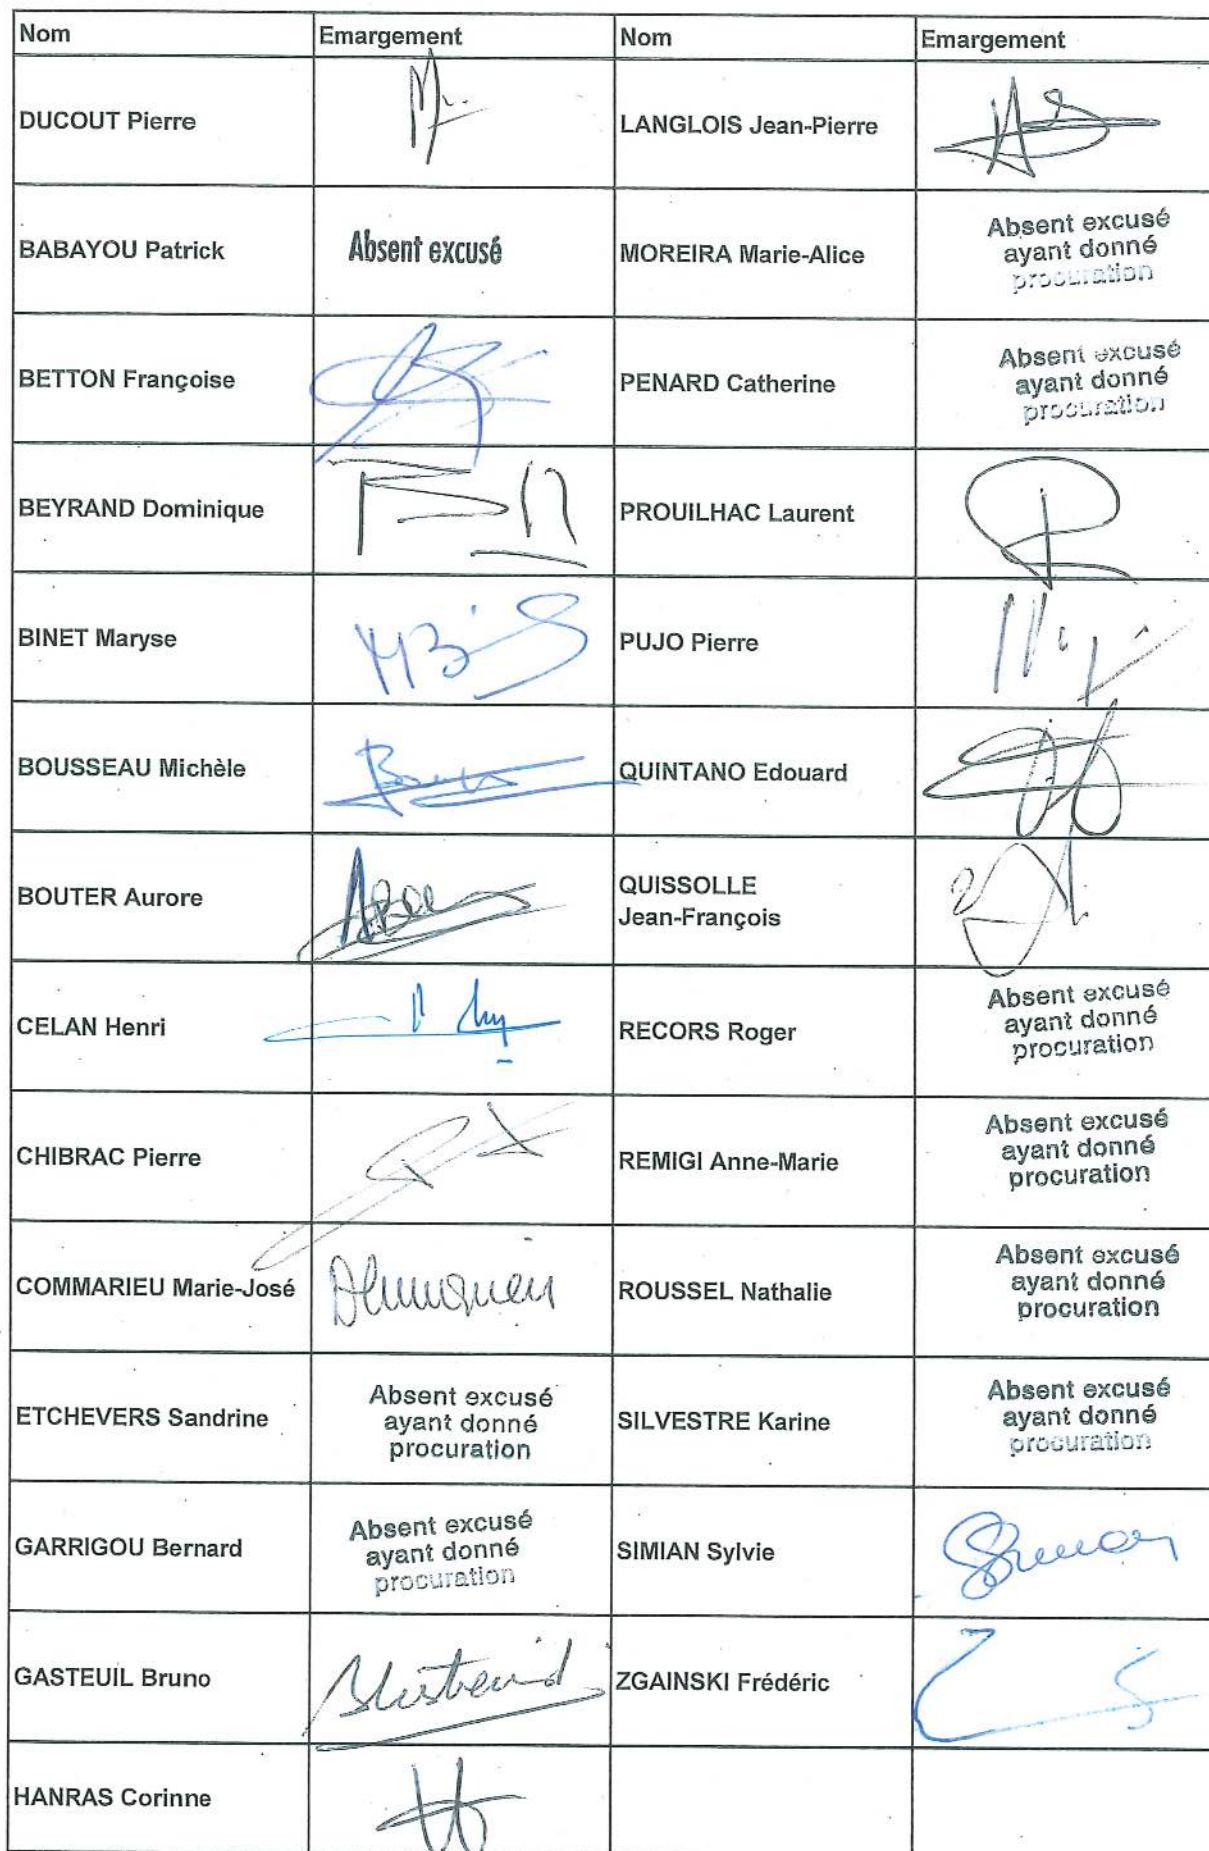 Nom Emargement Nom Emargement
DUCOUT Pierre LANGLOIS Jean-Pierre
BABAYOU Patrick Absent excusé MOREIRA Marie-Alice Absent excusé
ayant donné
procuration
BETTON Françoise PENARD Catherine Absent excusé
ayant donné
procuration
BEYRAND Dominique PROUILHAC Laurent
BINET Maryse PUJO Pierre
BOUSSEAU Michèle QUINTANO Edouard
BOUTER Aurore QUISSOLLE
Jean-François
CELAN Henri RECORS Roger Absent excusé
ayant donné
procuration
CHIBRAC Pierre REMIGI Anne-Marie Absent excusé
ayant donné
procuration
COMMARIEU Marie-José ROUSSEL Nathalie Absent excusé
ayant donné
procuration
ETCHEVERS Sandrine Absent excusé
ayant donné
procuration
SILVESTRE Karine Absent excusé
ayant donné
procuration
GARRIGOU Bernard Absent excusé
ayant donné
procuration
SIMIAN Sylvie
GASTEUIL Bruno ZGAINSKI Frédéric
HANRAS Corinne